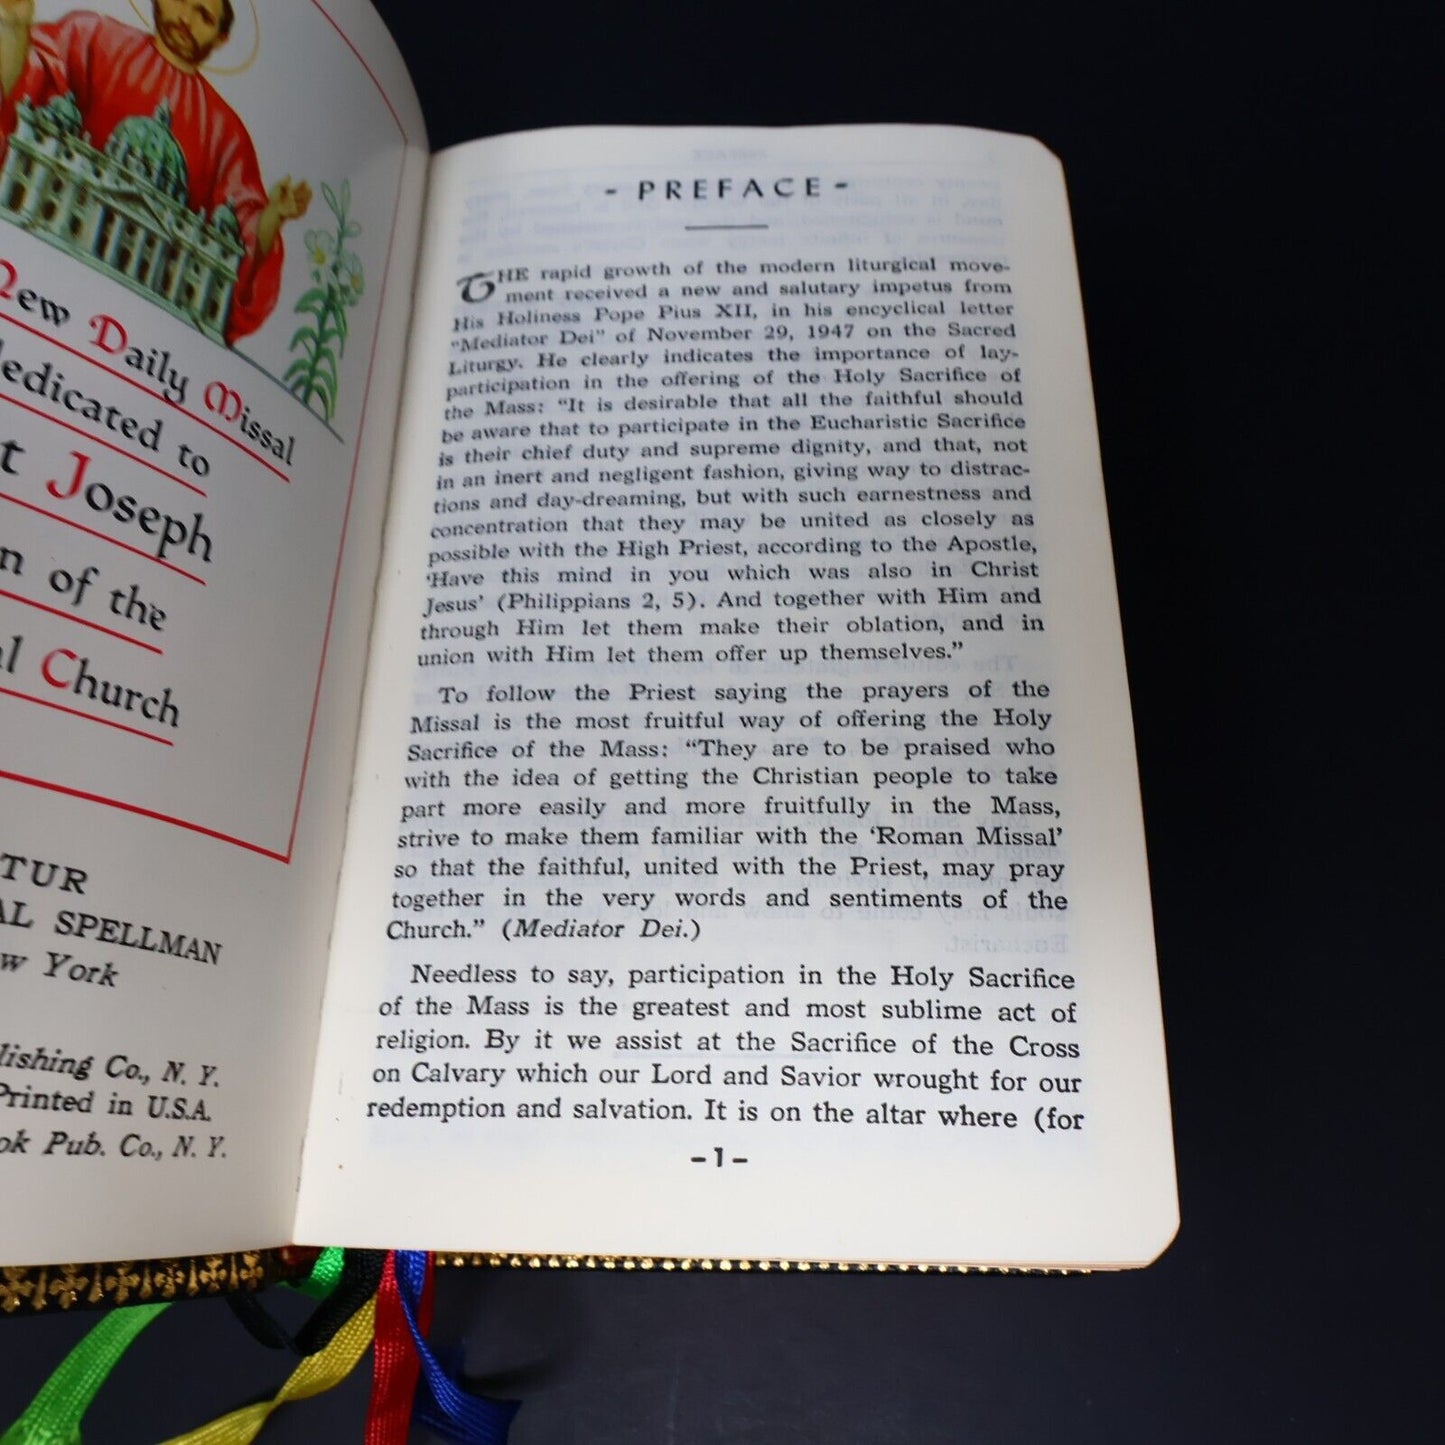 New Daily Missal
dedicated to
Joseph
of the
Church
SPELLMAN
York
Co., N. Y.
Printed in U.S.A.
Pub. Co., N. Y.
- PREFACE -
THE rapid growth of the modern liturgical move-
ment received a new and salutary impetus from
His Holiness Pope Pius XII, in his encyclical letter
"Mediator Dei" of November 29, 1947 on the Sacred
Liturgy. He clearly indicates the importance of lay-
participation in the offering of the Holy Sacrifice of
the Mass: "It is desirable that all the faithful should
be aware that to participate in the Eucharistic Sacrifice
is their chief duty and supreme dignity, and that, not
in an inert and negligent fashion, giving way to distrac-
tions and day-dreaming, but with such earnestness and
concentration that they may be united as closely as
possible with the High Priest, according to the Apostle,
'Have this mind in you which was also in Christ
Jesus' (Philippians 2, 5). And together with Him and
through Him let them make their oblation, and in
union with Him let them offer up themselves."
To follow the Priest saying the prayers of the
Missal is the most fruitful way of offering the Holy
Sacrifice of the Mass: "They are to be praised who
with the idea of getting the Christian people to take
part more easily and more fruitfully in the Mass,
strive to make them familiar with the 'Roman Missal'
so that the faithful, united with the Priest, may pray
together in the very words and sentiments of the
Church." (Mediator Dei.)
Needless to say, participation in the Holy Sacrifice
of the Mass is the greatest and most sublime act of
religion. By it we assist at the Sacrifice of the Cross
on Calvary which our Lord and Savior wrought for our
redemption and salvation. It is on the altar where (for
-1-